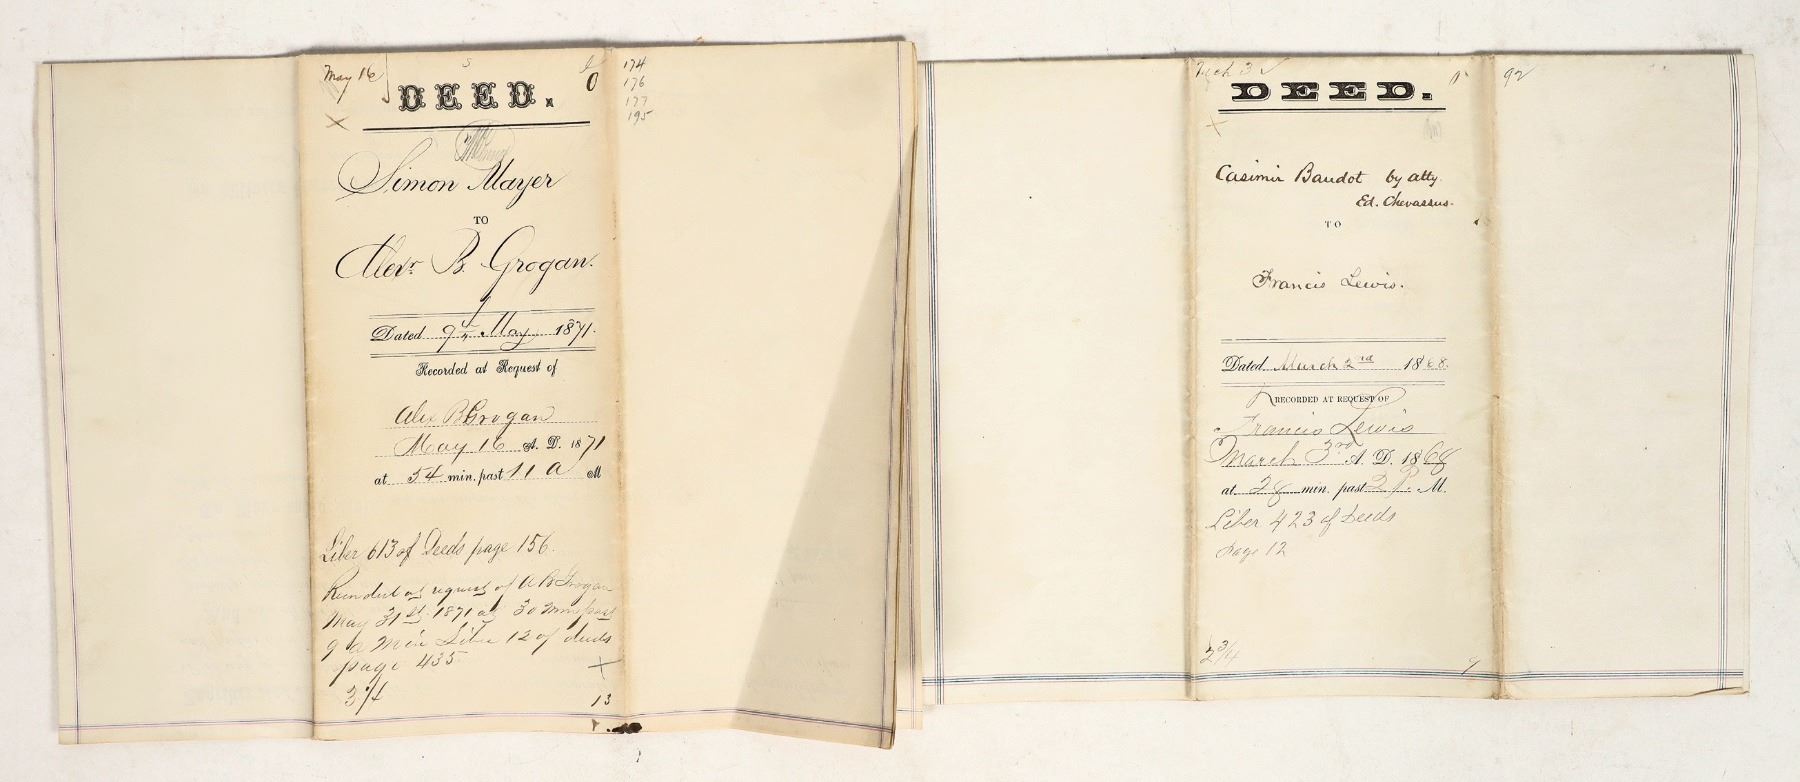 May 16
DEED.
0
X
Simon Mayer
TO
Alexr. B. Grogan.
Dated 9th May 1871.
Recorded at Request of
Alex B Grogan
May 16 A. D. 1871
at 54 min. past 11 A M
Liber 613 of Deeds page 156.
Recorded at request of A B Grogan
May 31st 1871 at 30 min past
9 a m in Liber 12 of deeds
page 435
X
3/4
13
174
176
177
195
3
DEED.
X
Casimir Baudot by atty.
Ed. Chevassus.
TO
Francis Lewis.
Dated March 2nd 1868.
RECORDED AT REQUEST OF
Francis Lewis
March 3rd A. D. 1868
at 28 min. past 2 P. M.
Liber 423 of Deeds
page 12
2 3/4
9
92